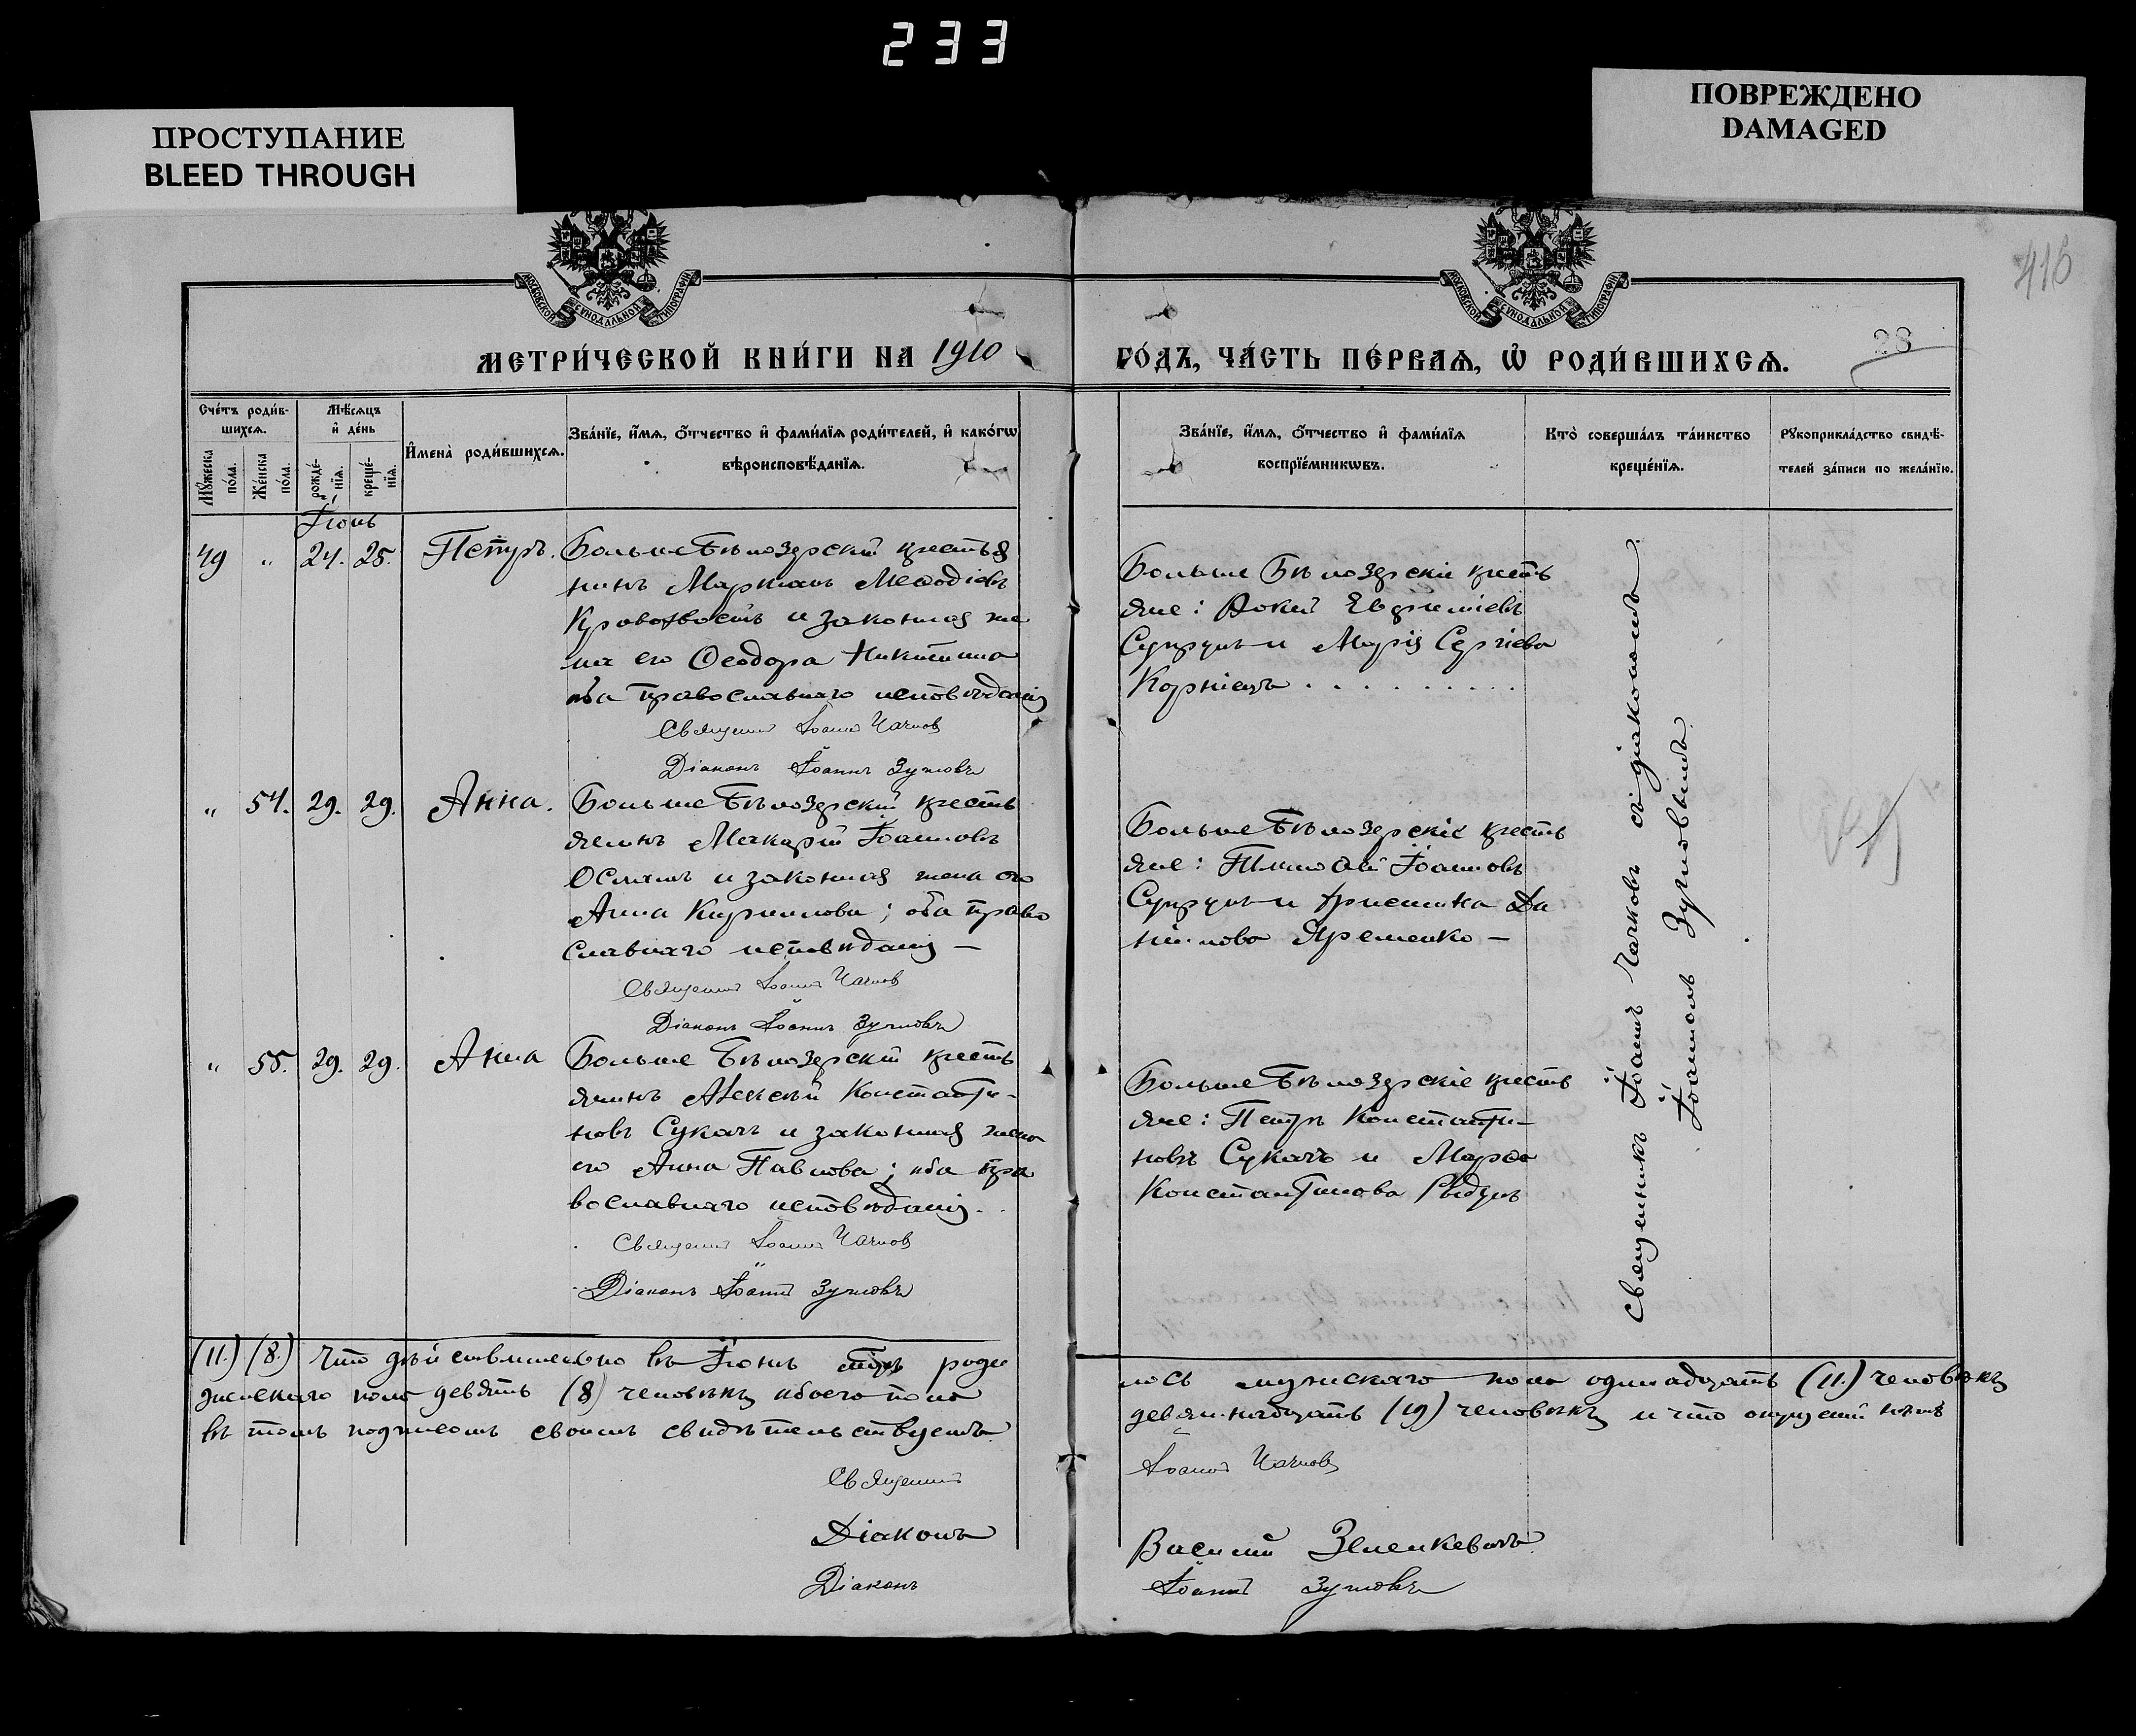 233
ПРОСТУПАНИЕ
BLEED THROUGH
ПОВРЕЖДЕНО
DAMAGED
416
МОСКОВСКОЙ СѴНОДАЛЬНОЙ ТИПОГРАФІИ
МОСКОВСКОЙ СѴНОДАЛЬНОЙ ТИПОГРАФІИ
28
МЕТРИ́ЧЕСКОЙ КНИ́ГИ НА 1910
ГО́ДЪ, ЧА́СТЬ ПЕ́РВАѦ, Ѡ҆ РОДИ́ВШИХСѦ.
Сче́тъ роди́в-
шихсѧ.
Мꙋ́жеска по́ла.
Же́нска по́ла.
Мѣ́сѧцъ
и҆ де́нь
рожде́-нїѧ.
креще́-нїѧ.
И҆мена̀ роди́вшихсѧ.
Зва́нїе, и҆́мѧ, ѻ҆́тчество и҆ фами́лїѧ роди́телей, и҆ како́гѡ
вѣроисповѣ́данїѧ.
Зва́нїе, и҆́мѧ, ѻ҆́тчество и҆ фами́лїѧ
воспрїе́мникѡвъ.
Кто̀ соверша́лъ та́инство
креще́нїѧ.
Рꙋкоприкла́дство свидѣ́-
телей за́писи по жела́нїю.
Іюнь
49 " 24. 25. Петръ. Больше Бѣлозерскій крестья
нинъ Маркіанъ Меѳодіевъ
Кровохвостъ и законная же
на его Ѳеодора Никитина
оба православнаго исповѣданія
Священникъ Іоаннъ Чачковъ
Діаконъ Іоаннъ Зуковъ
Больше Бѣлозерскіе кресть
яне: Евфиміевъ
Супрунъ и Марія Сергіева
Корніецъ . . . . . . . . . .
" 54. 29. 29. Анна. Больше Бѣлозерскій кресть
янинъ Макарій Іоанновъ
и законная жена его
Анна Кириллова; оба право
славнаго исповѣданія —
Священникъ Іоаннъ Чачковъ
Діаконъ Іоаннъ Зуковъ
Больше Бѣлозерскіе кресть
яне: Тимоѳей Іоанновъ
Супрунъ и Христина Да
ніилова Яременко —
" 55. 29. 29. Анна Больше Бѣлозерскій кресть
янинъ Алексѣй Константи-
новъ Сукачъ и законная жена
его Анна Павлова; оба пра
вославнаго исповѣданія.
Священникъ Іоаннъ Чачковъ
Діаконъ Іоаннъ Зуковъ
Больше Бѣлозерскіе кресть
яне: Петръ Константи-
новъ Сукачъ и Марѳа
Константинова
Священникъ Іоаннъ Чачковъ съ діакономъ
Іоанномъ Зуковымъ.
(11.) (8.) Что дѣйствительно въ Іюнѣ роди
лось мужскаго пола одинадцать (11.) человѣкъ
женскаго пола девять (8) человѣкъ обоего пола
девятнадцать (19) человѣкъ и что нѣтъ
въ томъ подписомъ своимъ свидѣтельствуемъ.
Священникъ Іоаннъ Чачковъ
Діаконъ Василій Зеленкевичъ
Діаконъ Іоаннъ Зуковъ